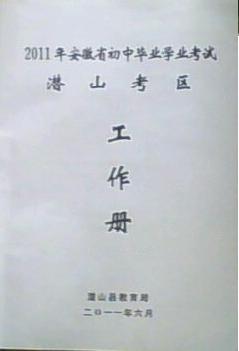 2011年安徽省初中毕业学业考试
潜山考区
工
作
册
潜山县教育局
二〇一一年六月